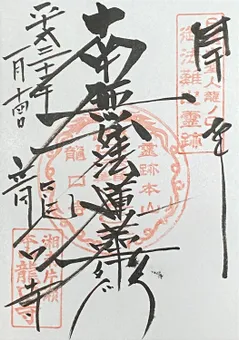 人龍ノ口
御法難
霊跡
南無妙法蓮華経
霊跡本山
龍口
平成三十年
一月
龍口寺
湘南片瀬
本山龍口寺